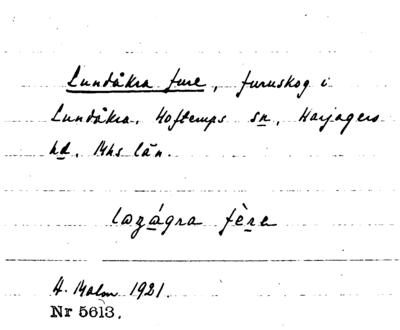 Lundåkra fure, furuskog i
Lundåkra, Hofterups sn, Harjagers
hd, Mhs län.
lozágra fère
H. 1921.
Nr 5613.